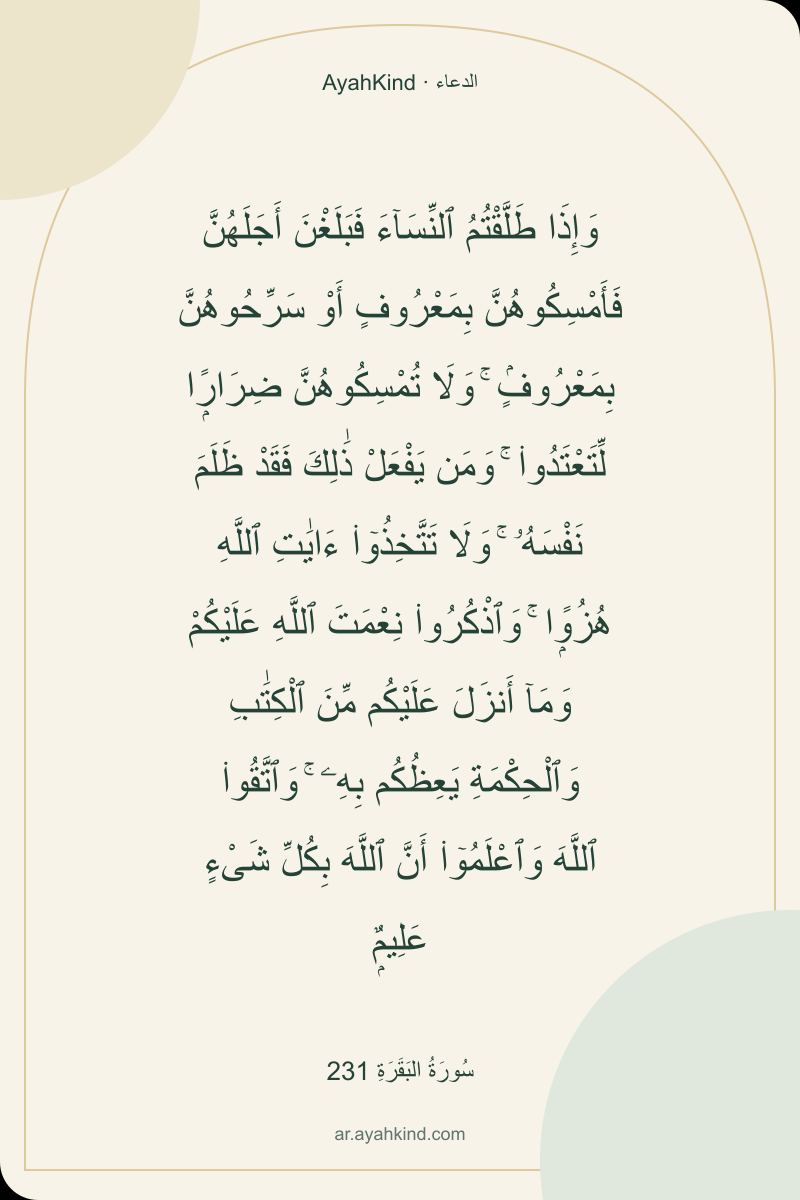 AyahKind · الدعاء
وَإِذَا طَلَّقْتُمُ ٱلنِّسَآءَ فَبَلَغْنَ أَجَلَهُنَّ
فَأَمْسِكُوهُنَّ بِمَعْرُوفٍ أَوْ سَرِّحُوهُنَّ
بِمَعْرُوفٍۢ ۚ وَلَا تُمْسِكُوهُنَّ ضِرَارًۭا
لِّتَعْتَدُوا۟ ۚ وَمَن يَفْعَلْ ذَٰلِكَ فَقَدْ ظَلَمَ
نَفْسَهُۥ ۚ وَلَا تَتَّخِذُوٓا۟ ءَايَٰتِ ٱللَّهِ
هُزُوًۭا ۚ وَٱذْكُرُوا۟ نِعْمَتَ ٱللَّهِ عَلَيْكُمْ
وَمَآ أَنزَلَ عَلَيْكُم مِّنَ ٱلْكِتَٰبِ
وَٱلْحِكْمَةِ يَعِظُكُم بِهِۦ ۚ وَٱتَّقُوا۟
ٱللَّهَ وَٱعْلَمُوٓا۟ أَنَّ ٱللَّهَ بِكُلِّ شَىْءٍ
عَلِيمٌۭ
سُورَةُ البَقَرَةِ 231
ar.ayahkind.com